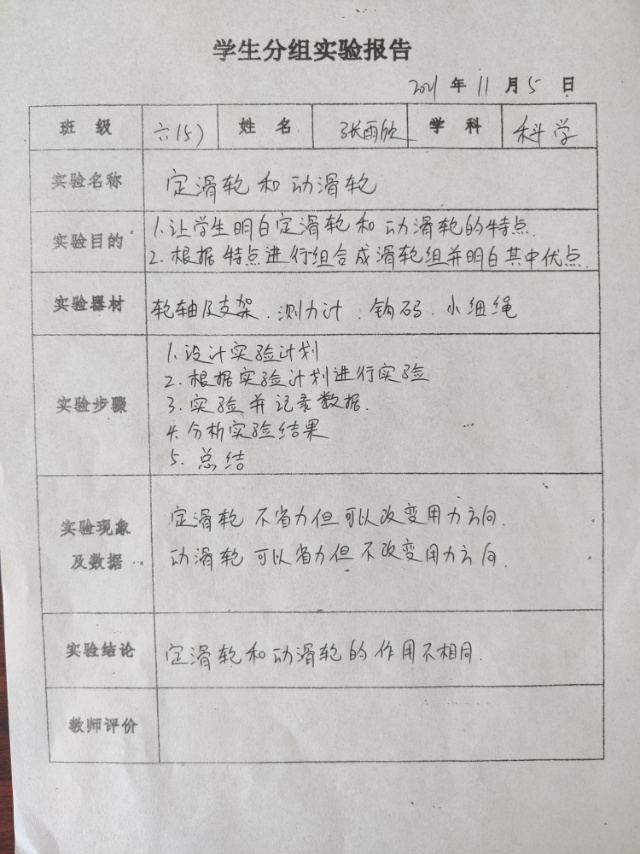 学生分组实验报告
2021年11月5日
班级 六(5) 姓名 张雨欣 学科 科学
实验名称 定滑轮和动滑轮
实验目的 1.让学生明白定滑轮和动滑轮的特点.
2.根据特点进行组合成滑轮组并明白其中优点.
实验器材 轮轴及支架.测力计.钩码.小细绳
1.设计实验计划
2.根据实验计划进行实验
实验步骤 3.实验并记录数据.
4.分析实验结果
5.总结
实验现象 定滑轮 不省力但可以改变用力方向.
及数据 动滑轮 可以省力但不改变用力方向.
实验结论 定滑轮和动滑轮的作用不相同.
教师评价